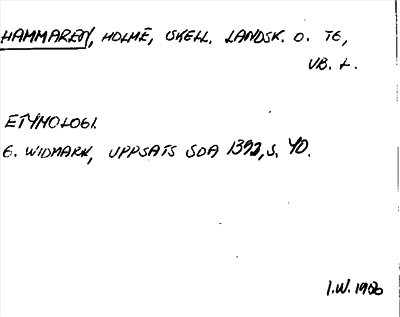 HAMMAREN, HOLME, SKELL. LANDSK. O. TE,
VB. L.
ETYMOLOGI.
G. WIDMARK, UPPSATS SOA 1392, S. 40.
I.W. 1966